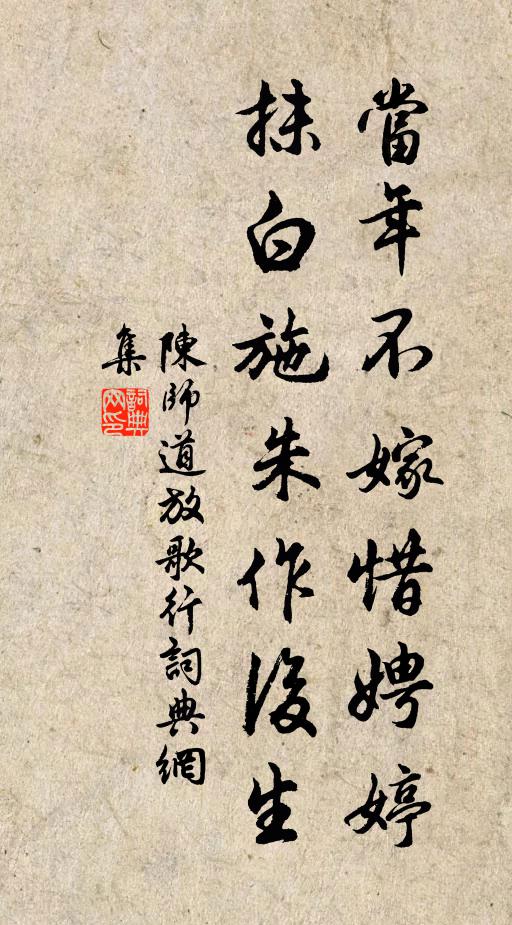 當年不嫁惜娉婷
抹白施朱作後生
陳師道放歌行詞典網
集
詞典網印